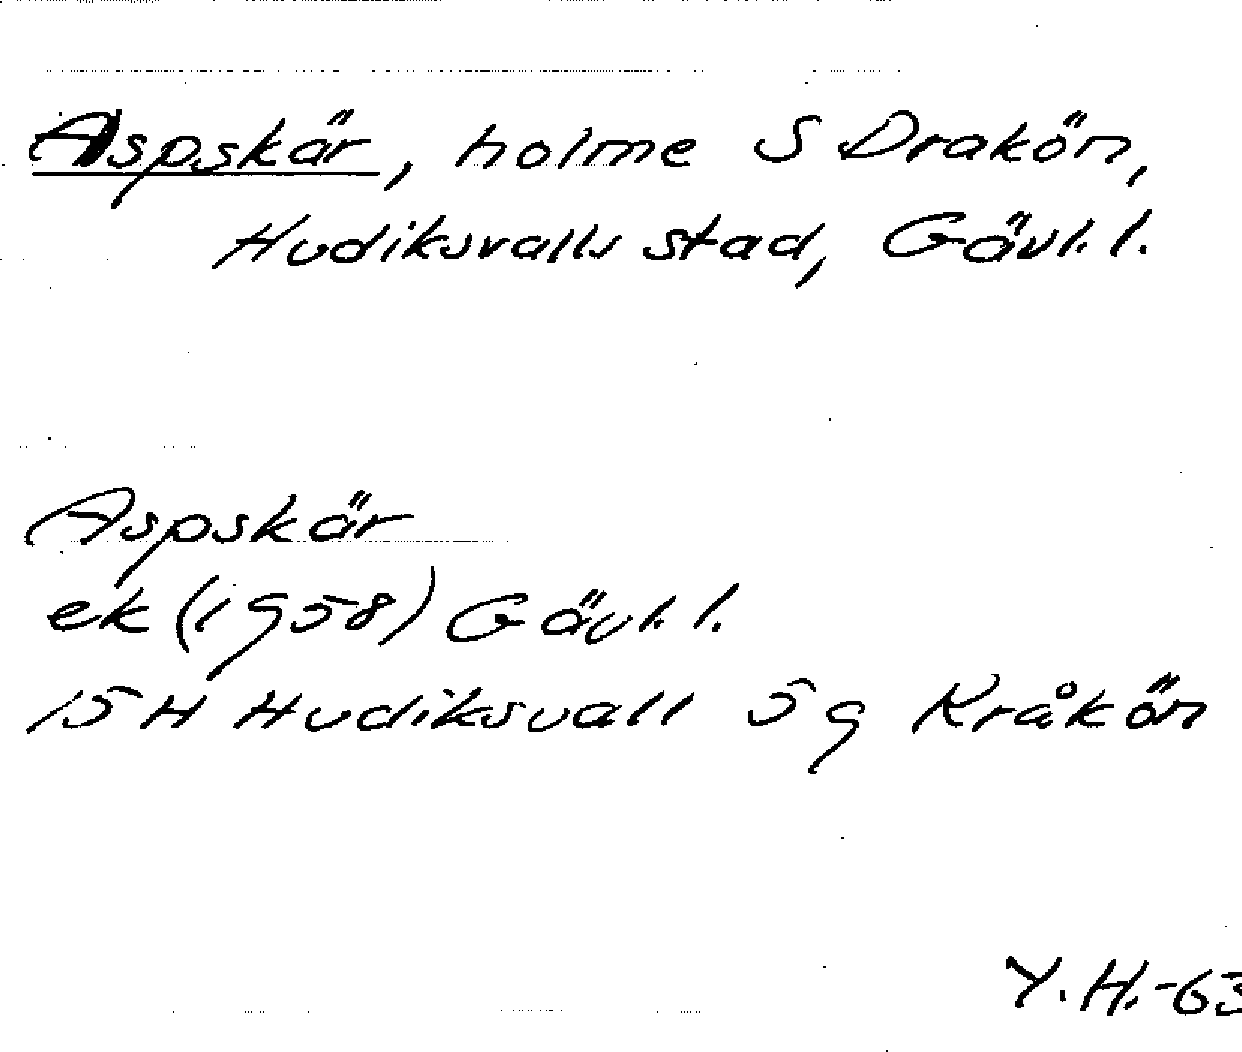 Aspskär, holme S Drakön,
Hudiksvalls stad, Gävl. l.
Aspskär
ek (1958) Gävl. l.
15 H Hudiksvall 5 g Kråkön
Y. H. -63